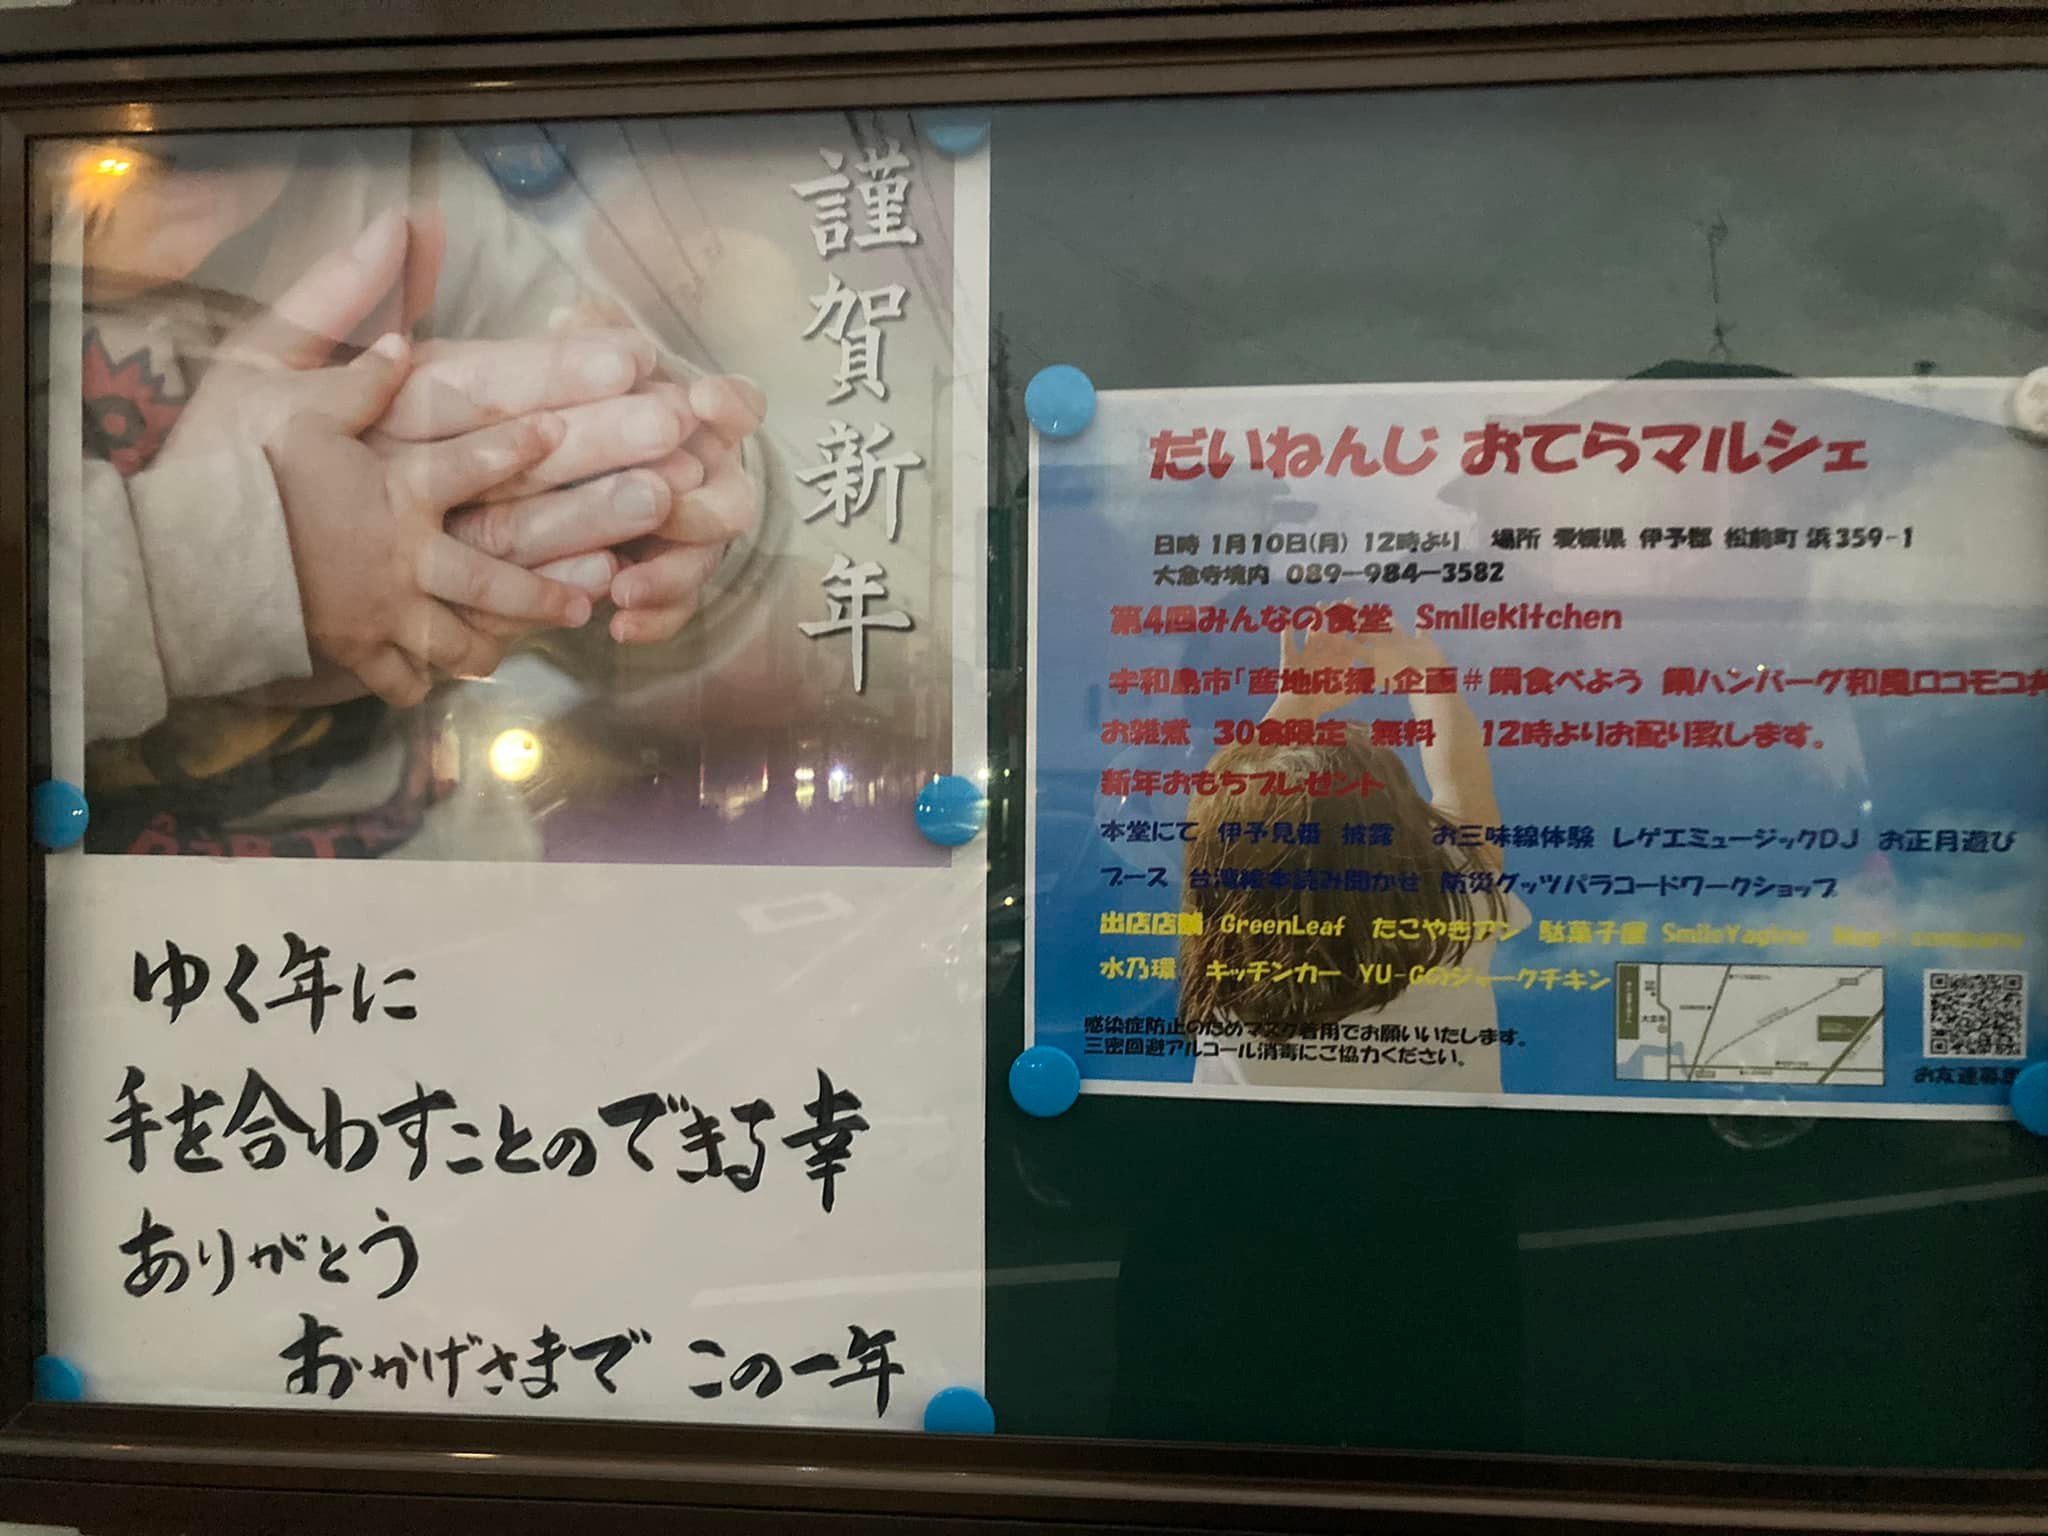 謹賀新年
ゆく年に
手を合わすことのできる幸
ありがとう
おかげさまで この一年
だいねんじ おてらマルシェ
日時 1月10日(月) 12時より 場所 愛媛県 伊予郡 松前町 浜359-1
大念寺境内 089-984-3582
第4回みんなの食堂 SmileKitchen
宇和島市「産地応援」企画#鯛食べよう 鯛ハンバーグ和風ロコモコ丼
お雑煮 30食限定 無料 12時よりお配り致します。
新年おもちプレゼント
本堂にて 伊予見番 披露 お三味線体験 レゲエミュージックDJ お正月遊び
ブース 台湾絵本読み聞かせ 防災グッツパラコードワークショップ
出店店舗 GreenLeaf たこやきアン 駄菓子屋
水乃環 キッチンカー YU-Gのジャークチキン
感染症防止のためマスク着用でお願いいたします。
三密回避アルコール消毒にご協力ください。
お友達募集